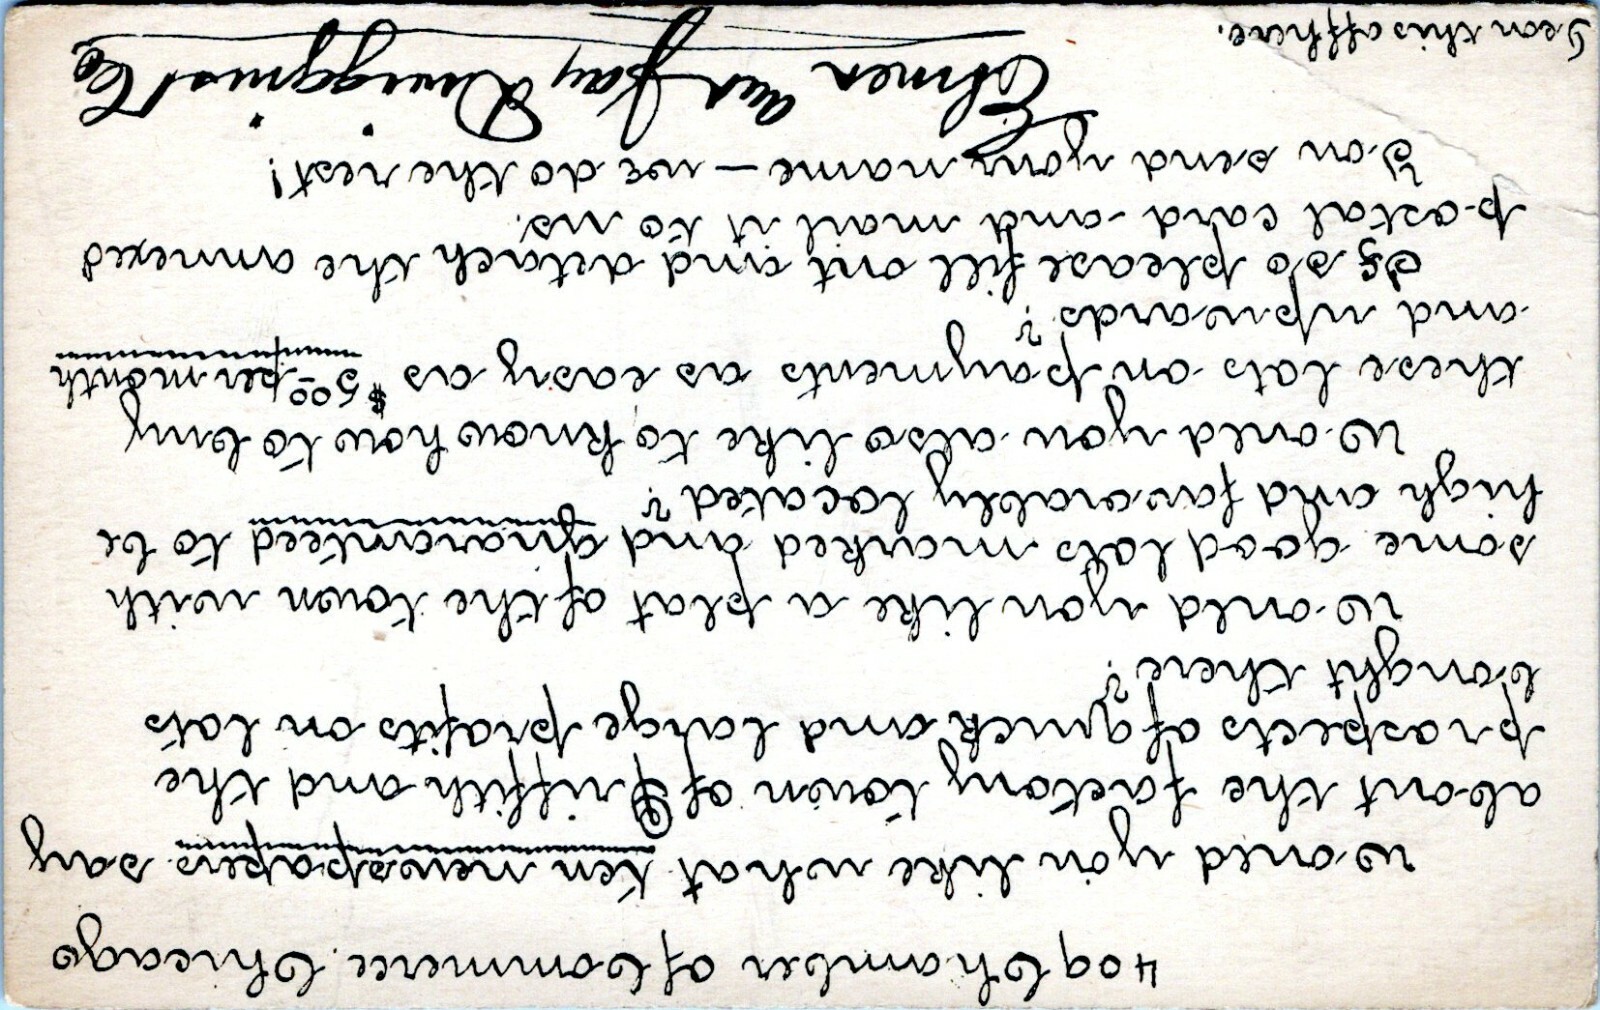 409 Chamber of Commerce. Chicago
Would you like what ten newspapers say
about the factory town of Griffith and the
prospects of quick and large profits on lots
bought there?
Would you like a plat of the town with
some good lots marked and guaranteed to be
high and favorably located?
Would you also like to know how to buy
these lots on payments as easy as $5.00 per month
and upwards?
If so please fill out and detach the annexed
postal card and mail it to us.
You send your name — we do the rest!
Elmer and Jay Dwiggins & Co
Tear this off here.